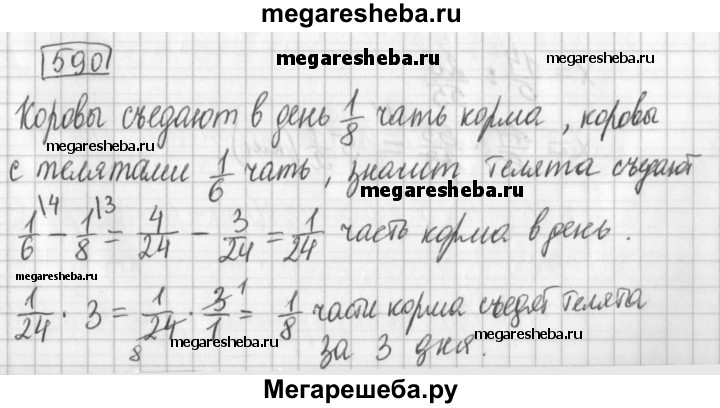 megaresheba.ru
590
megaresheba.ru megaresheba.ru
Коровы съедают в день 1/8 чать корма, коровы
megaresheba.ru
с телятами 1/6 чать, значит телята съедают
megaresheba.ru
1/6\4 - 1/8\3 = 4/24 - 3/24 = 1/24 часть корма в день.
megaresheba.ru
1/24 · 3 = 1/24 8 · 3/1 1 = 1/8 части корма съедят телята
megaresheba.ru megaresheba.ru
за 3 дня.
Мегарешеба.ру